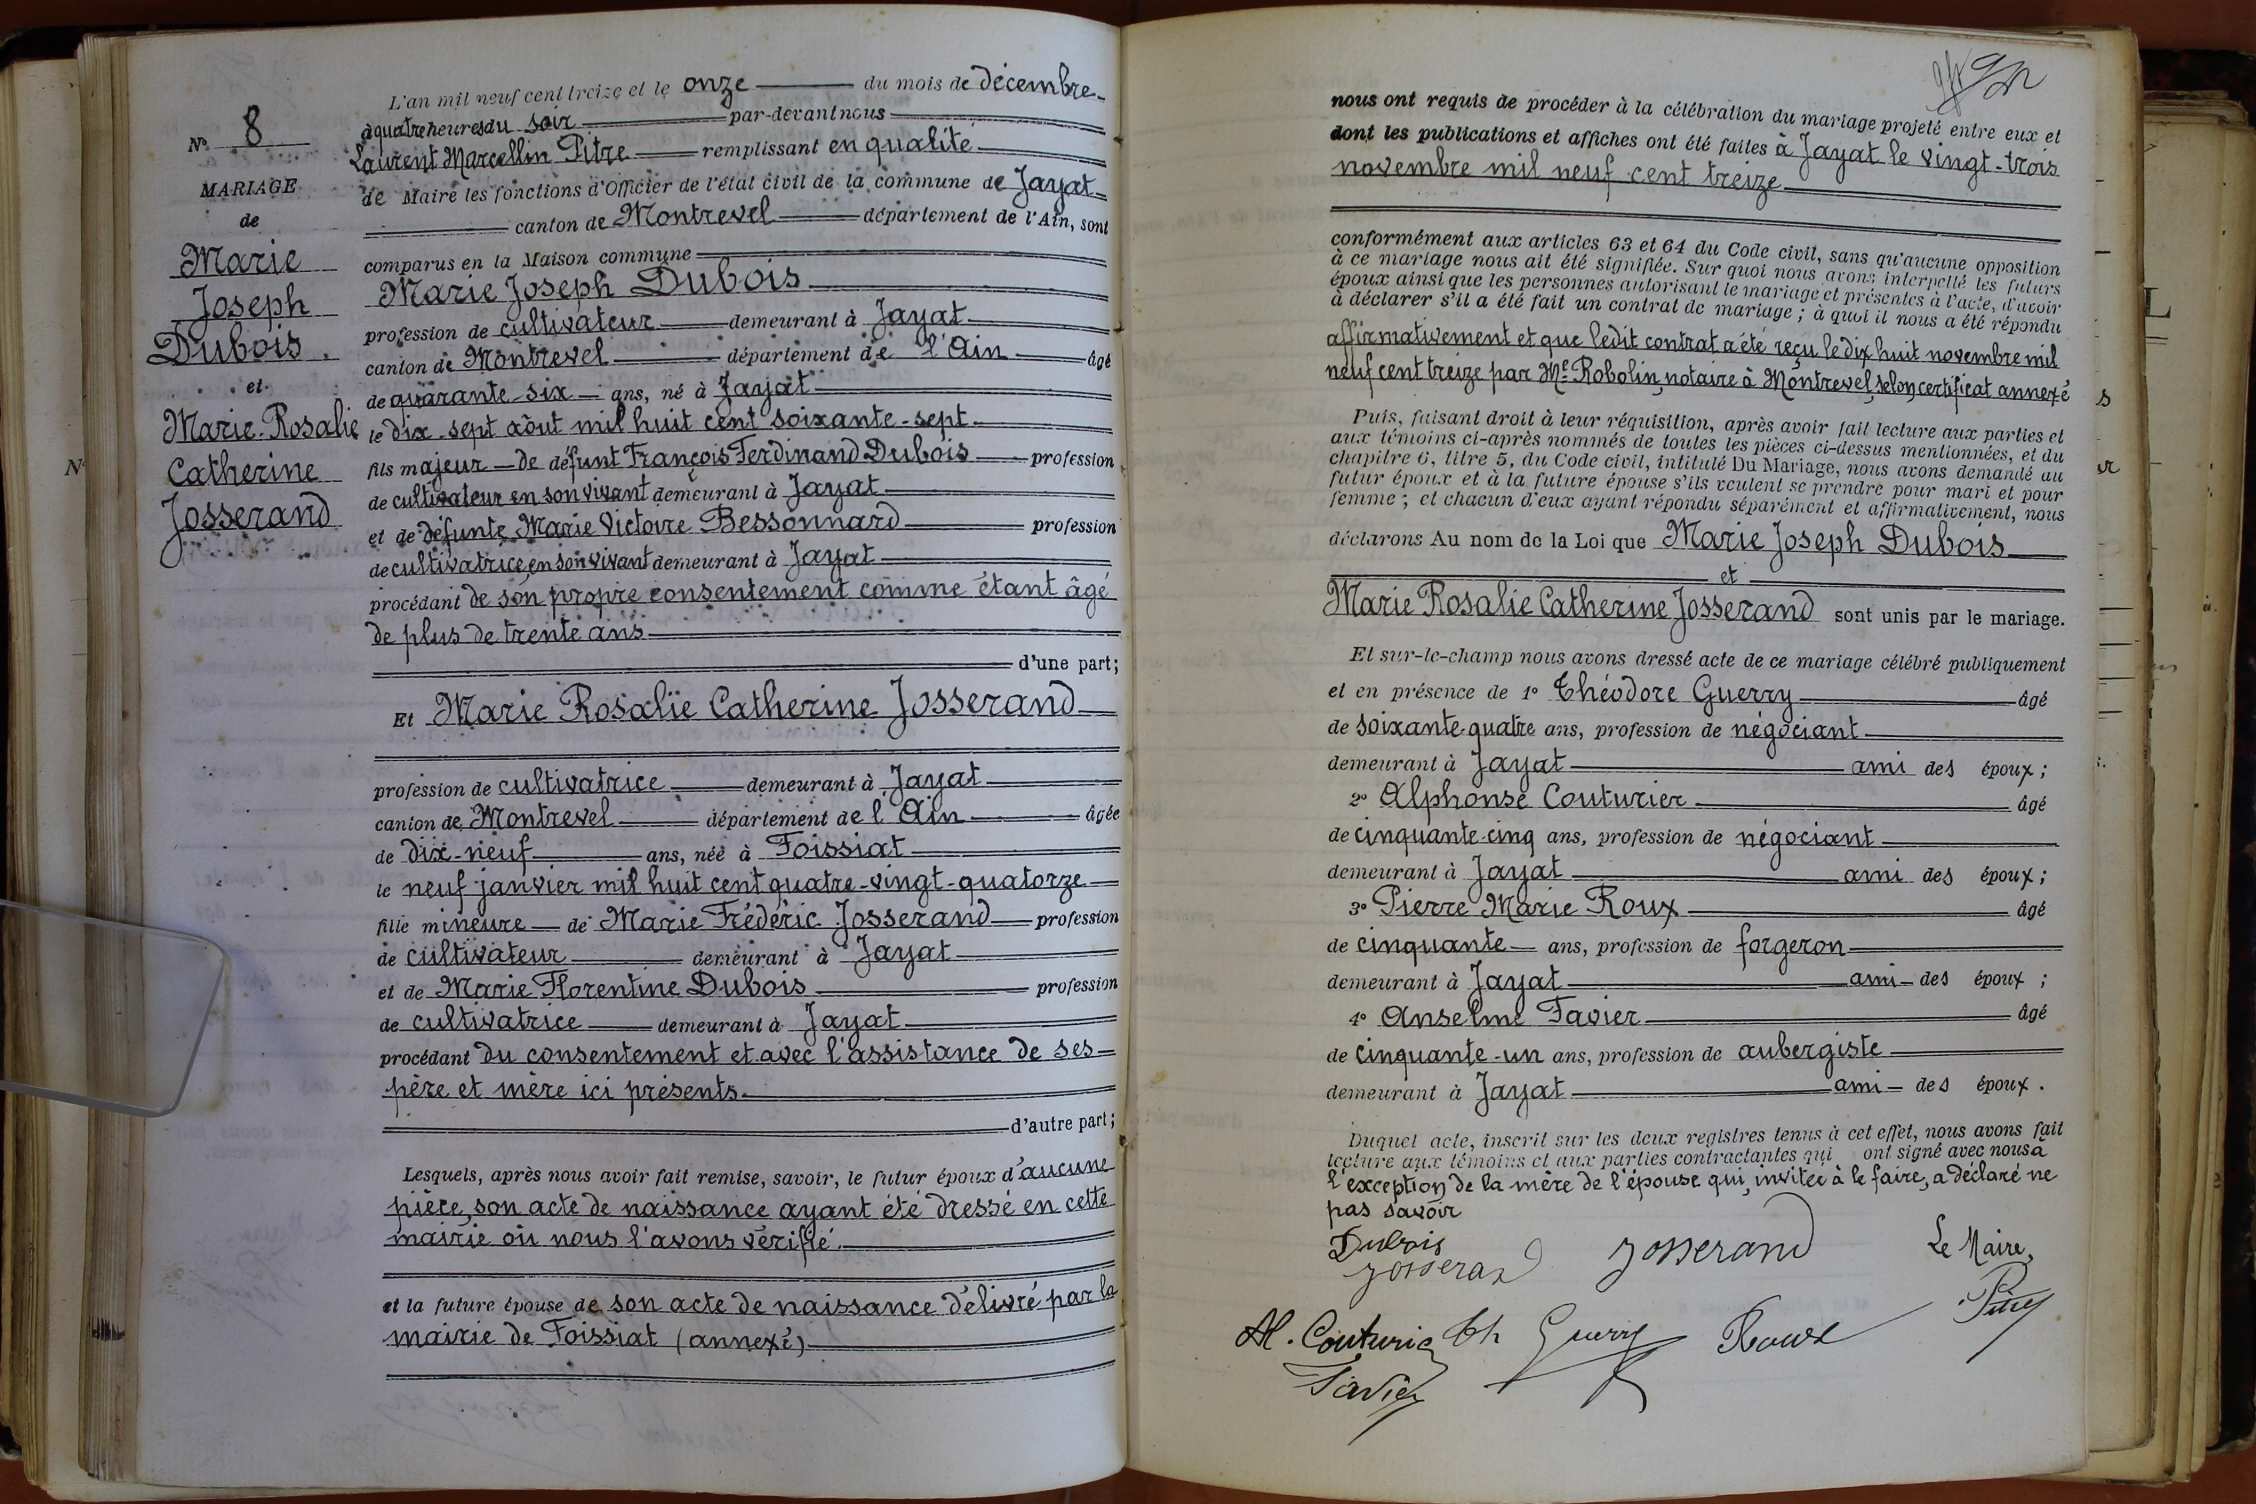 N° 8
MARIAGE
de
Marie
Joseph
Dubois.
et
Marie-Rosalie
Catherine
Josserand
L'an mil neuf cent treize et le onze du mois de décembre
à quatre heures du soir par-devant nous
Laurent Marcellin Pitre remplissant en qualité
de Maire les fonctions d'Officier de l'état civil de la commune de Jayat
canton de Montrevel département de l'Ain, sont
comparus en la Maison commune
Marie Joseph Dubois
profession de cultivateur demeurant à Jayat
canton de Montrevel département de l'Ain âgé
de quarante-six ans, né à Jayat
le dix-sept août mil huit cent soixante-sept
fils majeur de défunt François Ferdinand Dubois profession
de cultivateur en son vivant demeurant à Jayat
et de défunte Marie Victoire Bessonnard profession
de cultivatrice en son vivant demeurant à Jayat
procédant de son propre consentement comme étant âgé
de plus de trente ans
d'une part;
Et Marie Rosalie Catherine Josserand
profession de cultivatrice demeurant à Jayat
canton de Montrevel département de l'Ain âgée
de dix-neuf ans, née à Foissiat
le neuf janvier mil huit cent quatre-vingt-quatorze
fille mineure de Marie Frédéric Josserand profession
de cultivateur demeurant à Jayat
et de Marie Florentine Dubois profession
de cultivatrice demeurant à Jayat
procédant du consentement et avec l'assistance de ses
père et mère ici présents.
d'autre part;
Lesquels, après nous avoir fait remise, savoir, le futur époux d'aucune
pièce, son acte de naissance ayant été dressé en cette
mairie où nous l'avons vérifié.
et la future épouse de son acte de naissance délivré par la
mairie de Foissiat (annexé)
92
nous ont requis de procéder à la célébration du mariage projeté entre eux et
dont les publications et affiches ont été faites à Jayat le vingt-trois
novembre mil neuf cent treize
conformément aux articles 63 et 64 du Code civil, sans qu'aucune opposition
à ce mariage nous ait été signifiée. Sur quoi nous avons interpellé les futurs
époux ainsi que les personnes autorisant le mariage et présentes à l'acte, d'avoir
à déclarer s'il a été fait un contrat de mariage; à quoi il nous a été répondu
affirmativement et que ledit contrat a été reçu le dix huit novembre mil
neuf cent treize par Me Robolin, notaire à Montrevel, selon certificat annexé
Puis, faisant droit à leur réquisition, après avoir fait lecture aux parties et
aux témoins ci-après nommés de toutes les pièces ci-dessus mentionnées, et du
chapitre 6, titre 5, du Code civil, intitulé Du Mariage, nous avons demandé au
futur époux et à la future épouse s'ils veulent se prendre pour mari et pour
femme; et chacun d'eux ayant répondu séparément et affirmativement, nous
déclarons Au nom de la Loi que Marie Joseph Dubois
et
Marie Rosalie Catherine Josserand sont unis par le mariage.
Et sur-le-champ nous avons dressé acte de ce mariage célébré publiquement
et en présence de 1° Théodore Guerry âgé
de soixante-quatre ans, profession de négociant
demeurant à Jayat ami des époux;
2° Alphonse Couturier âgé
de cinquante-cinq ans, profession de négociant
demeurant à Jayat ami des époux;
3° Pierre Marie Roux âgé
de cinquante ans, profession de forgeron
demeurant à Jayat ami des époux;
4° Anselme Favier âgé
de cinquante-un ans, profession de aubergiste
demeurant à Jayat ami des époux.
Duquel acte, inscrit sur les deux registres tenus à cet effet, nous avons fait
lecture aux témoins et aux parties contractantes qui ont signé avec nous à
l'exception de la mère de l'épouse qui, invitée à le faire, a déclaré ne
pas savoir
Dubois
Josserand Josserand Le Maire,
Pitre
Al. Couturier Th Guerry Roux
Favier